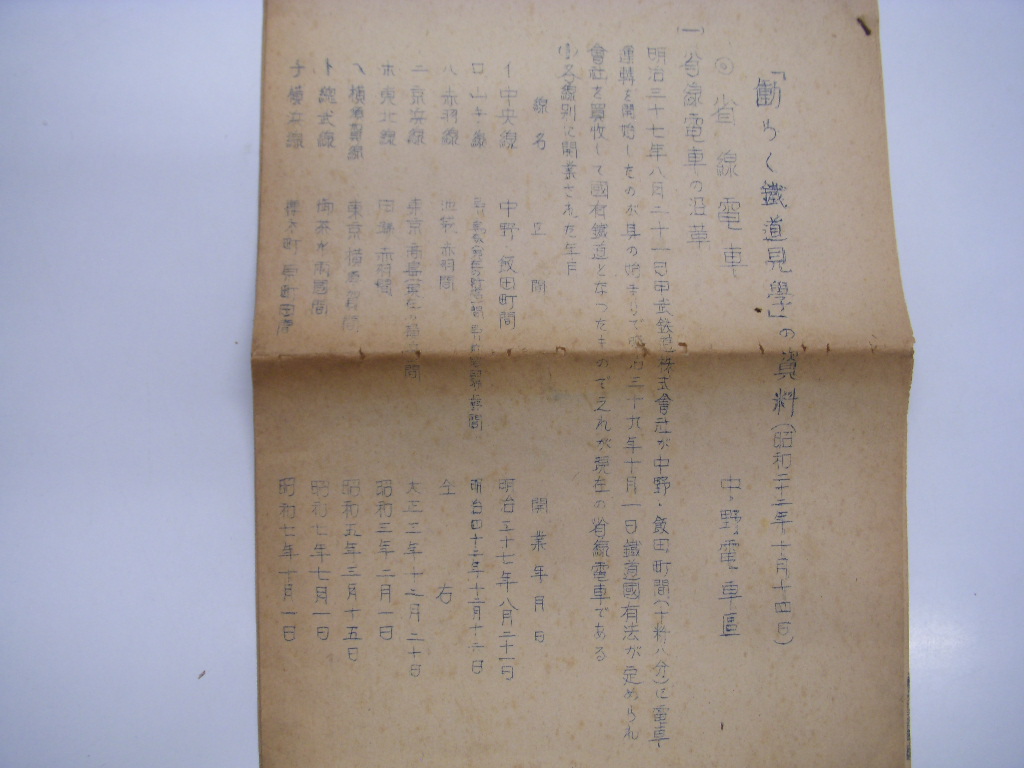 「働らく鐵道見學」の資料(昭和二十二年十月十四日)
◎省線電車
中野電車區
(一)省線電車の沿革
明治三十七年八月二十一日甲武鉄道株式會社が中野・飯田町間(十粁八分)に電車
運轉を開始したのが其の始まりで明治三十九年十月一日鐵道國有法が定められ
會社を買收して國有鐵道となつたものでこれが現在の省線電車である
各線別に開業された年月
線名 区間 開業年月日
イ 中央線 中野 飯田町間 明治三十七年八月二十一日
ロ 山手線 明治四十二年十二月十六日
ハ 赤羽線 池袋 赤羽間 仝右
ニ 京浜線 東京 高島町 間 大正三年十二月二十日
ホ 東北線 田端 赤羽間 昭和三年二月一日
ヘ 横須賀線 東京 横須賀間 昭和五年三月十五日
ト 總武線 御茶水 両國間 昭和七年七月一日
チ 横浜線 昭和七年十月一日